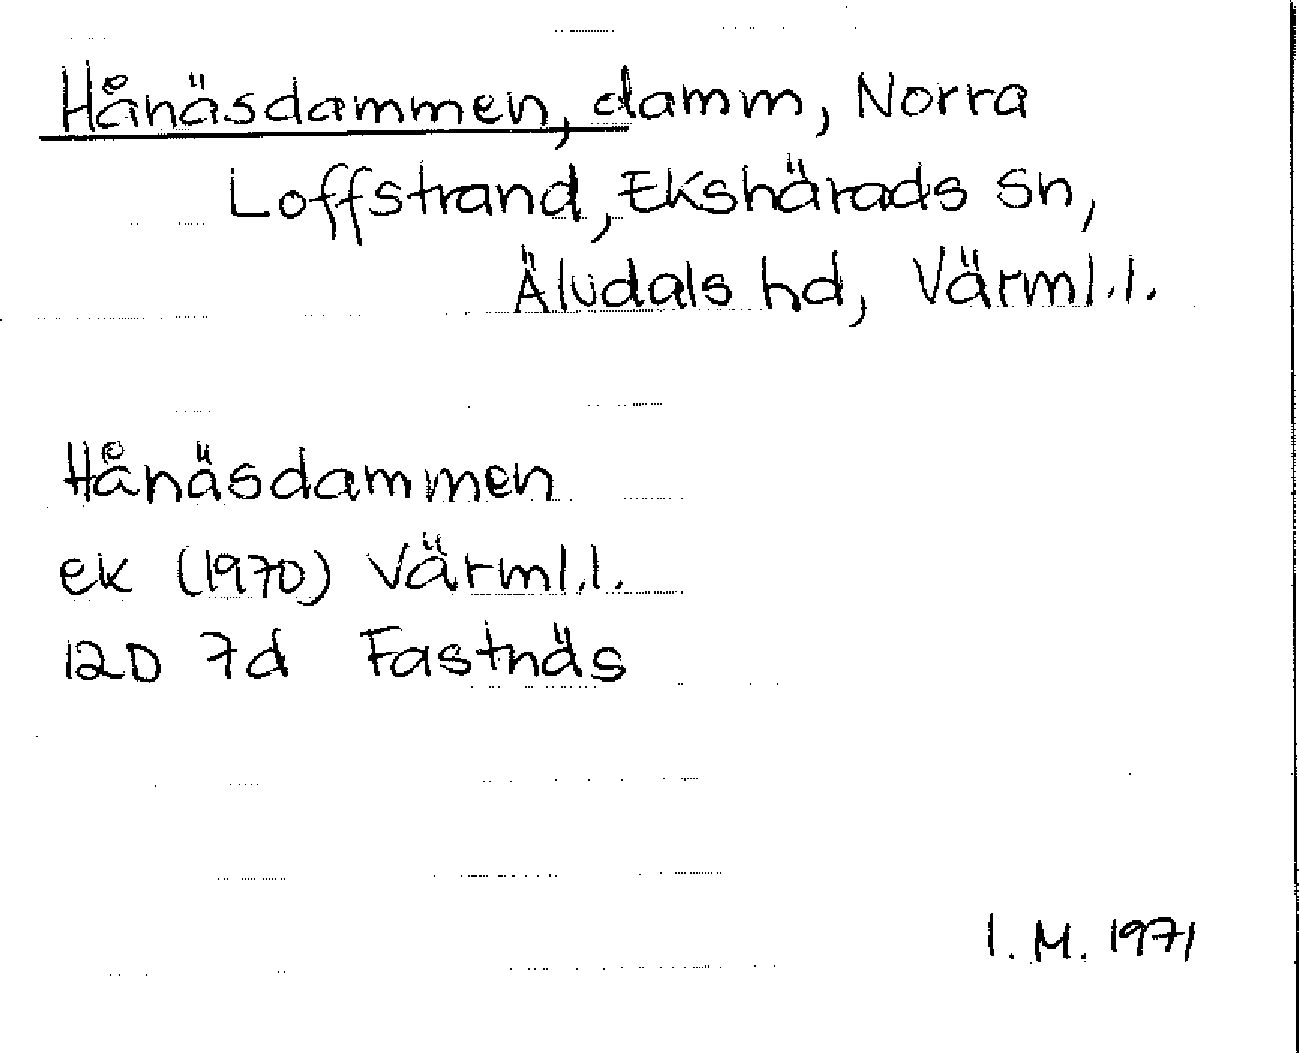 Hånäsdammen, damm, Norra
Loffstrand, Ekshärads sn,
Älvdals hd, Värml.l.
Hånäsdammen
ek (1970) Värml.l.
12D 7d Fastnäs
I.M. 1971